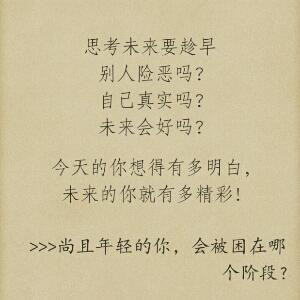 思考未来要趁早
别人险恶吗？
自己真实吗？
未来会好吗？
今天的你想得有多明白，
未来的你就有多精彩！
>>>尚且年轻的你，会被困在哪
个阶段？